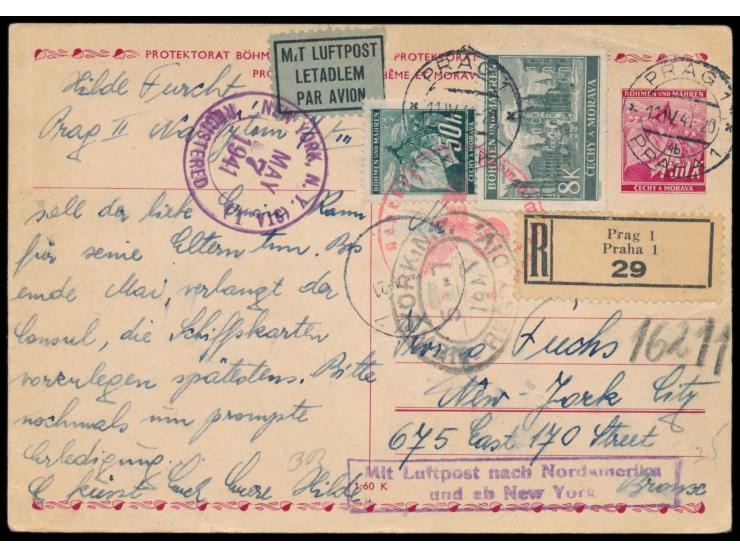 PROTEKTORAT BÖHM
PROTEKTORAT
PRO
HÊME ET MORAV
MIT LUFTPOST
LETADLEM
PAR AVION
Hilde Furcht
Prag II
NEW YORK, N. Y. (STA.
MAY 7
1941
REGISTERED
BÖHMEN UND MÄHREN
50h
ČECHY A MORAVA
BÖHMEN UND MÄHREN
ČECHY A MORAVA
8K
PRAG 1
11.IV.41
PRAG 1
11.IV.41-20
46b
PRAHA 1
BÖHMEN UND MÄHREN
1·50K
ČECHY A MORAVA
R
Prag 1
Praha 1
29
soll der liebe kann
für seine Eltern tun. Bis
ende Mai, verlangt der
Consul, die Schiffskarten
vorzulegen spätestens. Bitte
nochmals um prompte
Erledigung.
Es küsst Euch Eure Hilde
1941
Fuchs
16211
New-York City
675 East 170 Street
Bronx
302
1·60 K
Mit Luftpost nach Nordamerika
und ab New York